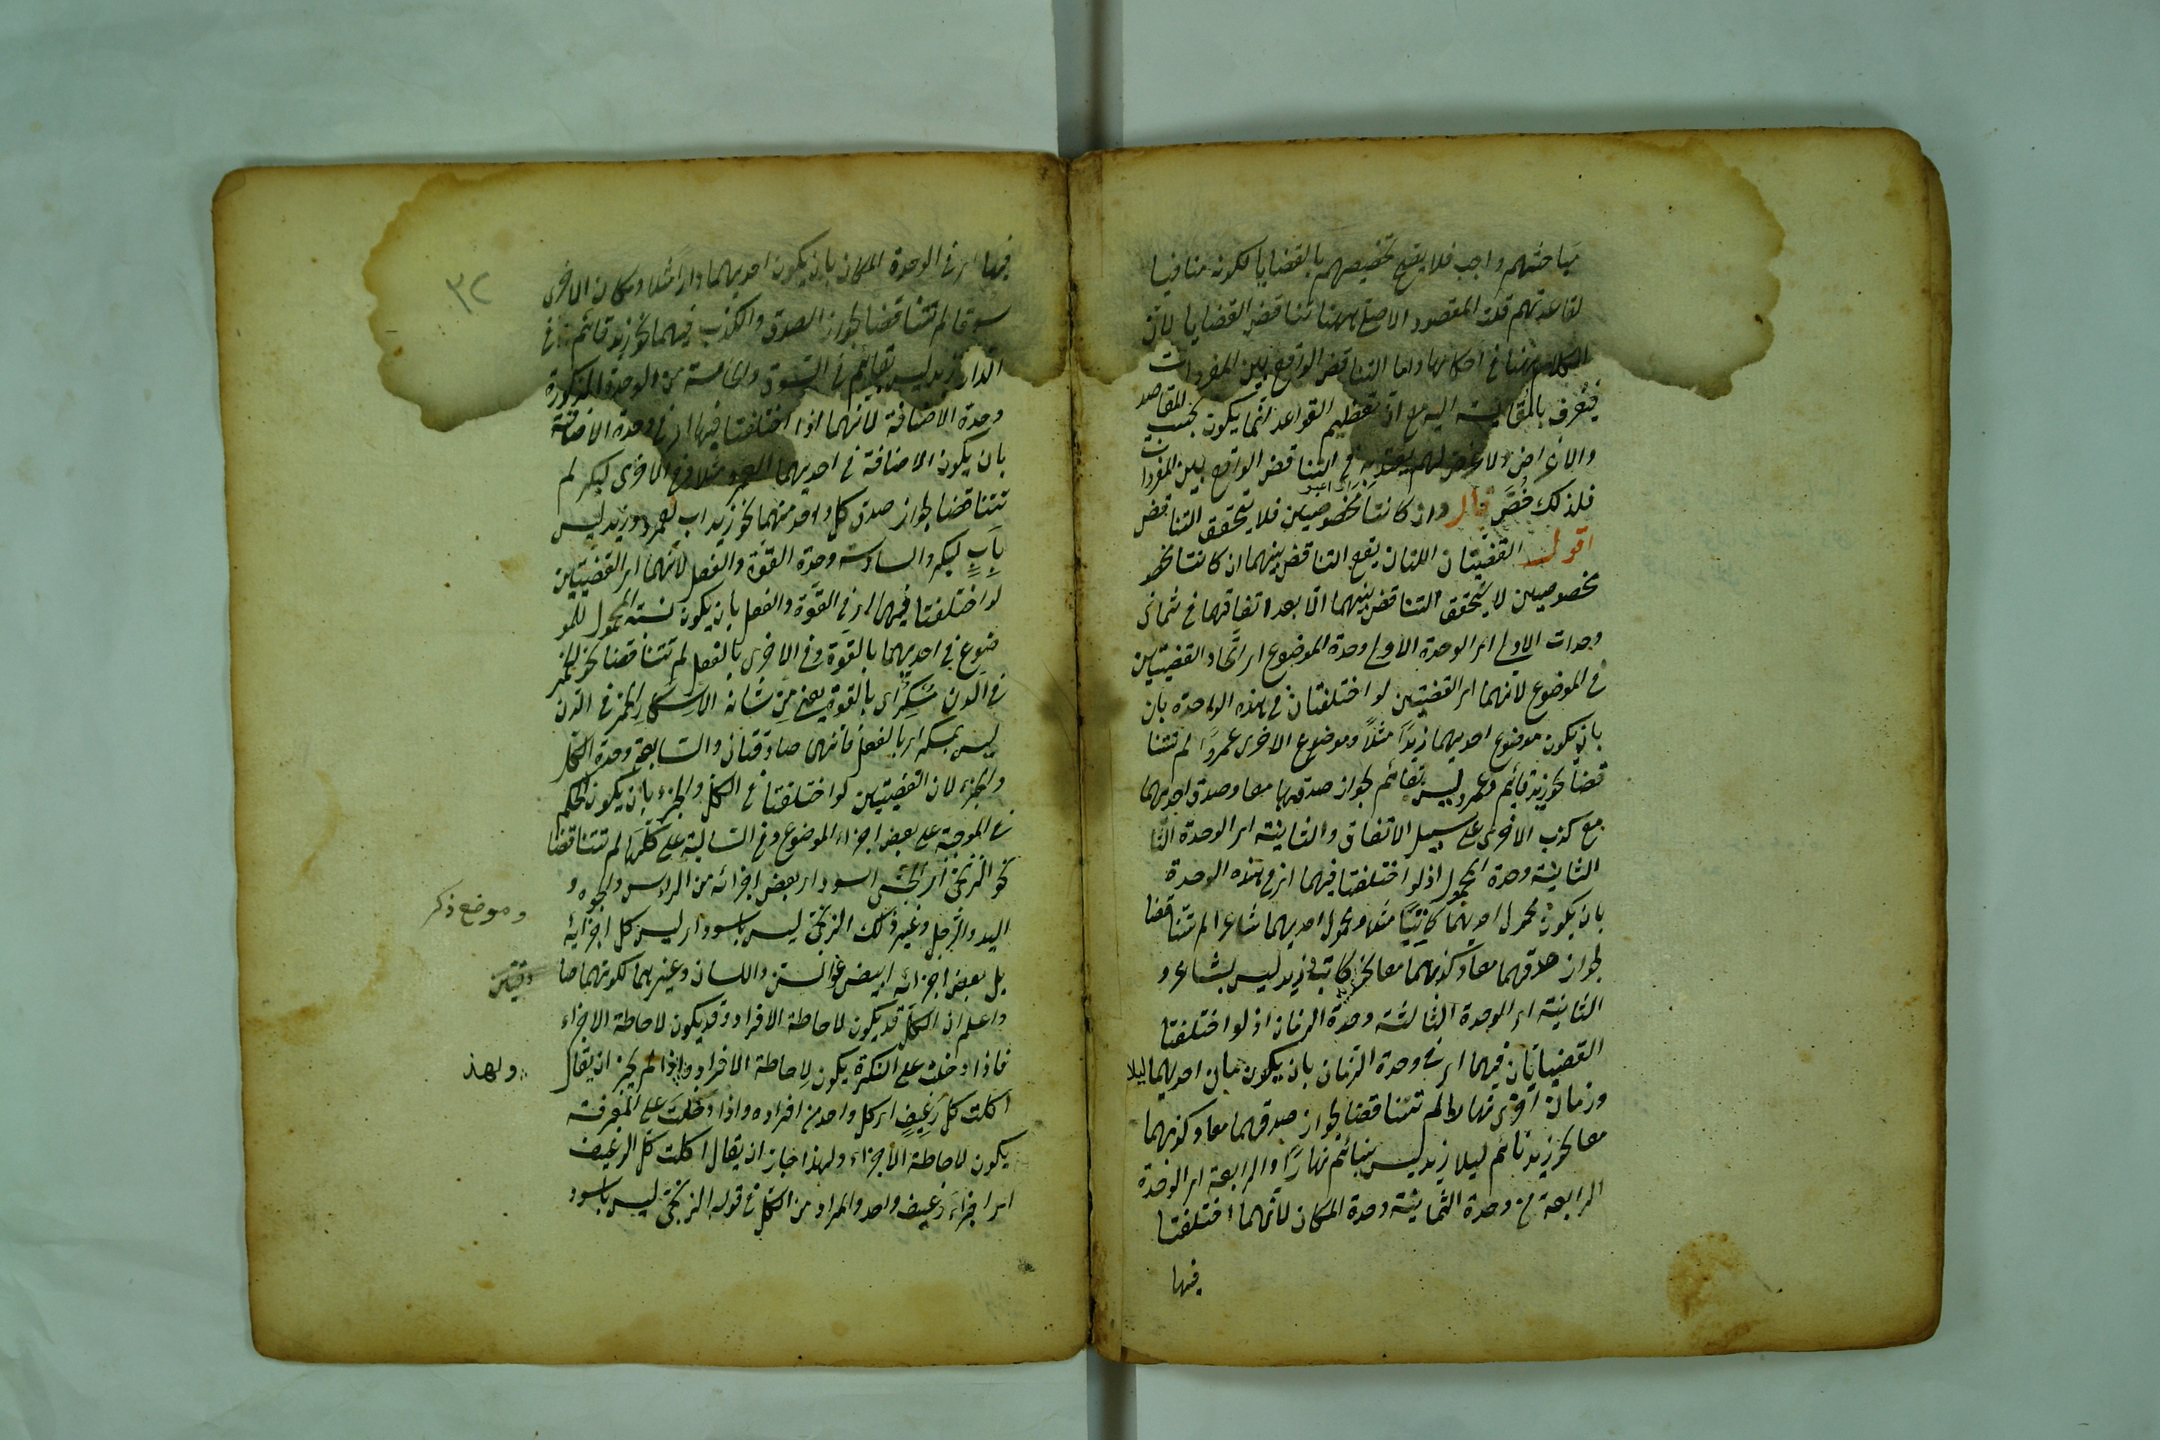 مباحثهم واجب فلا يقع تخصيصهم بالقضايا لكونه منافيا
لقاعدتهم قلت المقصود الاصلي ههنا تناقض القضايا لان
الكلام ههنا في احكامها واما التناقض الواقع بين المفردات
فيعرف بالمقايسة اليه مع ان تعظيم القواعد انما يكون بحسب المقاصد
والاغراض ولا غرض لهم يعتد به في التناقض الواقع بين المفردات
فلذلك خص قال وان كانتا مخصوصيين فلا يتحقق التناقض
اقول القضيتان اللتان يقع التناقض بينهما ان كانتا مخصو
مخصوصيين لا يتحقق التناقض بينهما الا بعد اتفاقهما في ثماني
وحدات الاولى اى الوحدة الاولى وحدة الموضوع اى اتحاد القضيتين
في الموضوع لانهما اى القضيتين لو اختلفتان في هذه الواحدة بان
بان يكون موضوع احديهما زيدا مثلا وموضوع الاخرى عمروا لم تتنا
قضا نحو زيد قائم وعمرو ليس بقائم لجواز صدقهما معا وصدق احديهما
مع كذب الاخرى على سبيل الاتفاق والثانية اى الوحدة الثا
الثانية وحدة المحمول اذ لو اختلفتا فيهما اى في هذه الوحدة
بان يكون محمول احديهما كاتبا مثلا ومحمول احديهما شاعرا لم تتناقضا
لجواز صدقهما معا وكذبهما معا نحو كاتب زيد ليس بشاعر و
الثانية اى الوحدة الثالثة وحدة الزمان اذ لو اختلفتا
القضيتان فيهما اى في وحدة الزمان بان يكون زمان احديهما ليلا
وزمان اخرى نهارا لم تتناقضا لجواز صدقهما معا وكذبهما
معا نحو زيد نائم ليلا زيد ليس بنائم نهارا والرابعة اى الوحدة
الرابعة من وحدة الثمانية وحدة المكان لانهما اختلفتا
فيها
٣٢
فيها اى في الوحدة المكان بان يكون احديهما دارا مثلا ومكان الاخرى
سوقا لم تتناقضا لجواز الصدق والكذب فيهما نحو زيد قائم في
الدار زيد ليس بقائم في السوق والخامسة من الوحدة المذكورة
وحدة الاضافة لانهما اذا اختلفتا فيها اى في وحدة الاضافة
بان يكون الاضافة في احديهما لعمرو مثلا وفي الاخرى لبكر لم
تتناقضا لجواز صدق كل واحد منهما نحو زيد اب لعمرو وزيد ليس
باب لبكر والسادسة وحدة القوة والفعل لانهما اى القضيتين
لو اختلفتا فيهما اى في القوة والفعل بان يكون نسبة المحمول للمو
ضوع في احديهما بالقوة وفي الاخرى بالفعل لم تتناقضا نحو الخمر
في الدن مسكر اى بالقوة يعني من شانه الاسكار الخمر في الدن
ليس بمسكر اى بالفعل فانهما صادقتان والسابعة وحدة الكل
والجزء لان القضيتين لو اختلفتا في الكل والجزء بان يكون الحكم
في الموجبة على بعض اجزاء الموضوع وفي السالبة على كلها لم تتناقضا
نحو الزنجى اى الحبشى اسود اى بعض اجزائه من الراس والوجه و
اليد والرجل وغير ذلك الزنجى ليس باسود اى ليس كل اجزائه
وموضع ذكر
بل بعض اجزائه ابيض نحو السن واللسان وغيرهما لكونهما صا
دقتين
واعلم ان الكل قد يكون لاحاطة الافراد وقد يكون لاحاطة الاجزاء
فاذا دخلت على النكرة يكون لاحاطة الافراد ولذا لم يجز ان يقال
ولهذ
اكلت كل رغيف اى كل واحد من افراده واذا دخلت على المعرفة
يكون لاحاطة الاجزاء ولهذا جاز ان يقال اكلت كل الرغيف
اى اجزاء رغيف واحد والمراد من الكل في قوله الزنجى ليس باسود